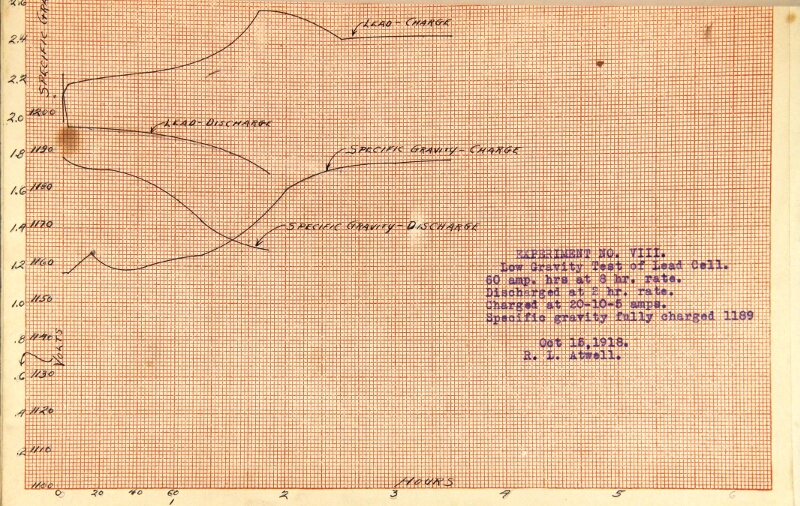 2.6
SPECIFIC GRA
2.4
LEAD-CHARGE
2.2
2.0 1200
LEAD-DISCHARGE
1.8 1190
SPECIFIC GRAVITY-CHARGE
1.6 1180
1.4 1170
SPECIFIC GRAVITY-DISCHARGE
1.2 1160
EXPERIMENT NO. VIII.
Low Gravity Test of Lead Cell.
60 amp. hrs at 8 hr. rate.
Discharged at 2 hr. rate.
Charged at 20-10-5 amps.
Specific gravity fully charged 1189
Oct 15,1918.
R. L. Atwell.
1.0 1150
.8 1140
VOLTS
.6 1130
.4 1120
.2 1110
1100
HOURS
0 20 40 60 2 3 4 5 6
1